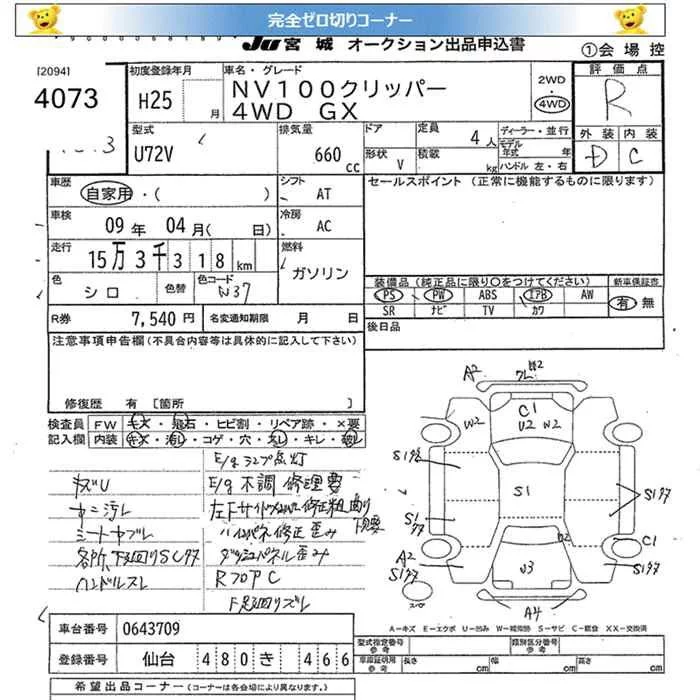 完全ゼロ切りコーナー
JU 宮城 オークション出品申込書
①会場控
[2094]
4073
初度登録年月
H25 月
車名・グレード
NV100クリッパー
4WD GX
2WD
4WD
評価点
R
外装 内装
D C
型式
U72V
排気量
660 cc
ドア
形状 V
定員
4 人
積載 kg
ディーラー・並行
モデル年式 年
ハンドル 左・右
車歴
自家用・( )
シフト
AT
セールスポイント (正常に機能するものに限ります)
車検
09 年 04 月( 日)
冷房
AC
走行
15万3千318 km
燃料
ガソリン
色
シロ
色替
色コード
N37
装備品 (純正品に限り○をつけてください)
PS PW ABS エアB AW
SR ナビ TV カワ
新車保証書
有 無
R券 7,540 円
名変通知期限 月 日
後日品
注意事項申告欄 (不具合内容等は具体的に記入して下さい)
修復歴 有 [箇所 ]
検査員記入欄
FW キズ・飛石・ヒビ割・リペア跡・×要
内装 キズ・汚レ・コゲ・穴・スレ・キレ・破レ
E/gランプ点灯
E/g不調 修理要
シートヤブレ
ハンドルスレ
ダッシュパネル歪み
RフロアC
A2
W2
C1
U2 W2
S1
S1サタ
S1サタ
S1サタ
A2
S1サタ
C1
U3
A4
スペア
A=キズ E=エクボ U=凹み W=補修跡 S=サビ C=腐食 XX=交換済
車台番号 0643709
登録番号 仙台 480 き 466
型式指定番号 参考
類別区分番号 参考
車庫証明用 参考 長さ cm 幅 cm 高さ cm
希望出品コーナー (コーナーは各会場により異なります。)